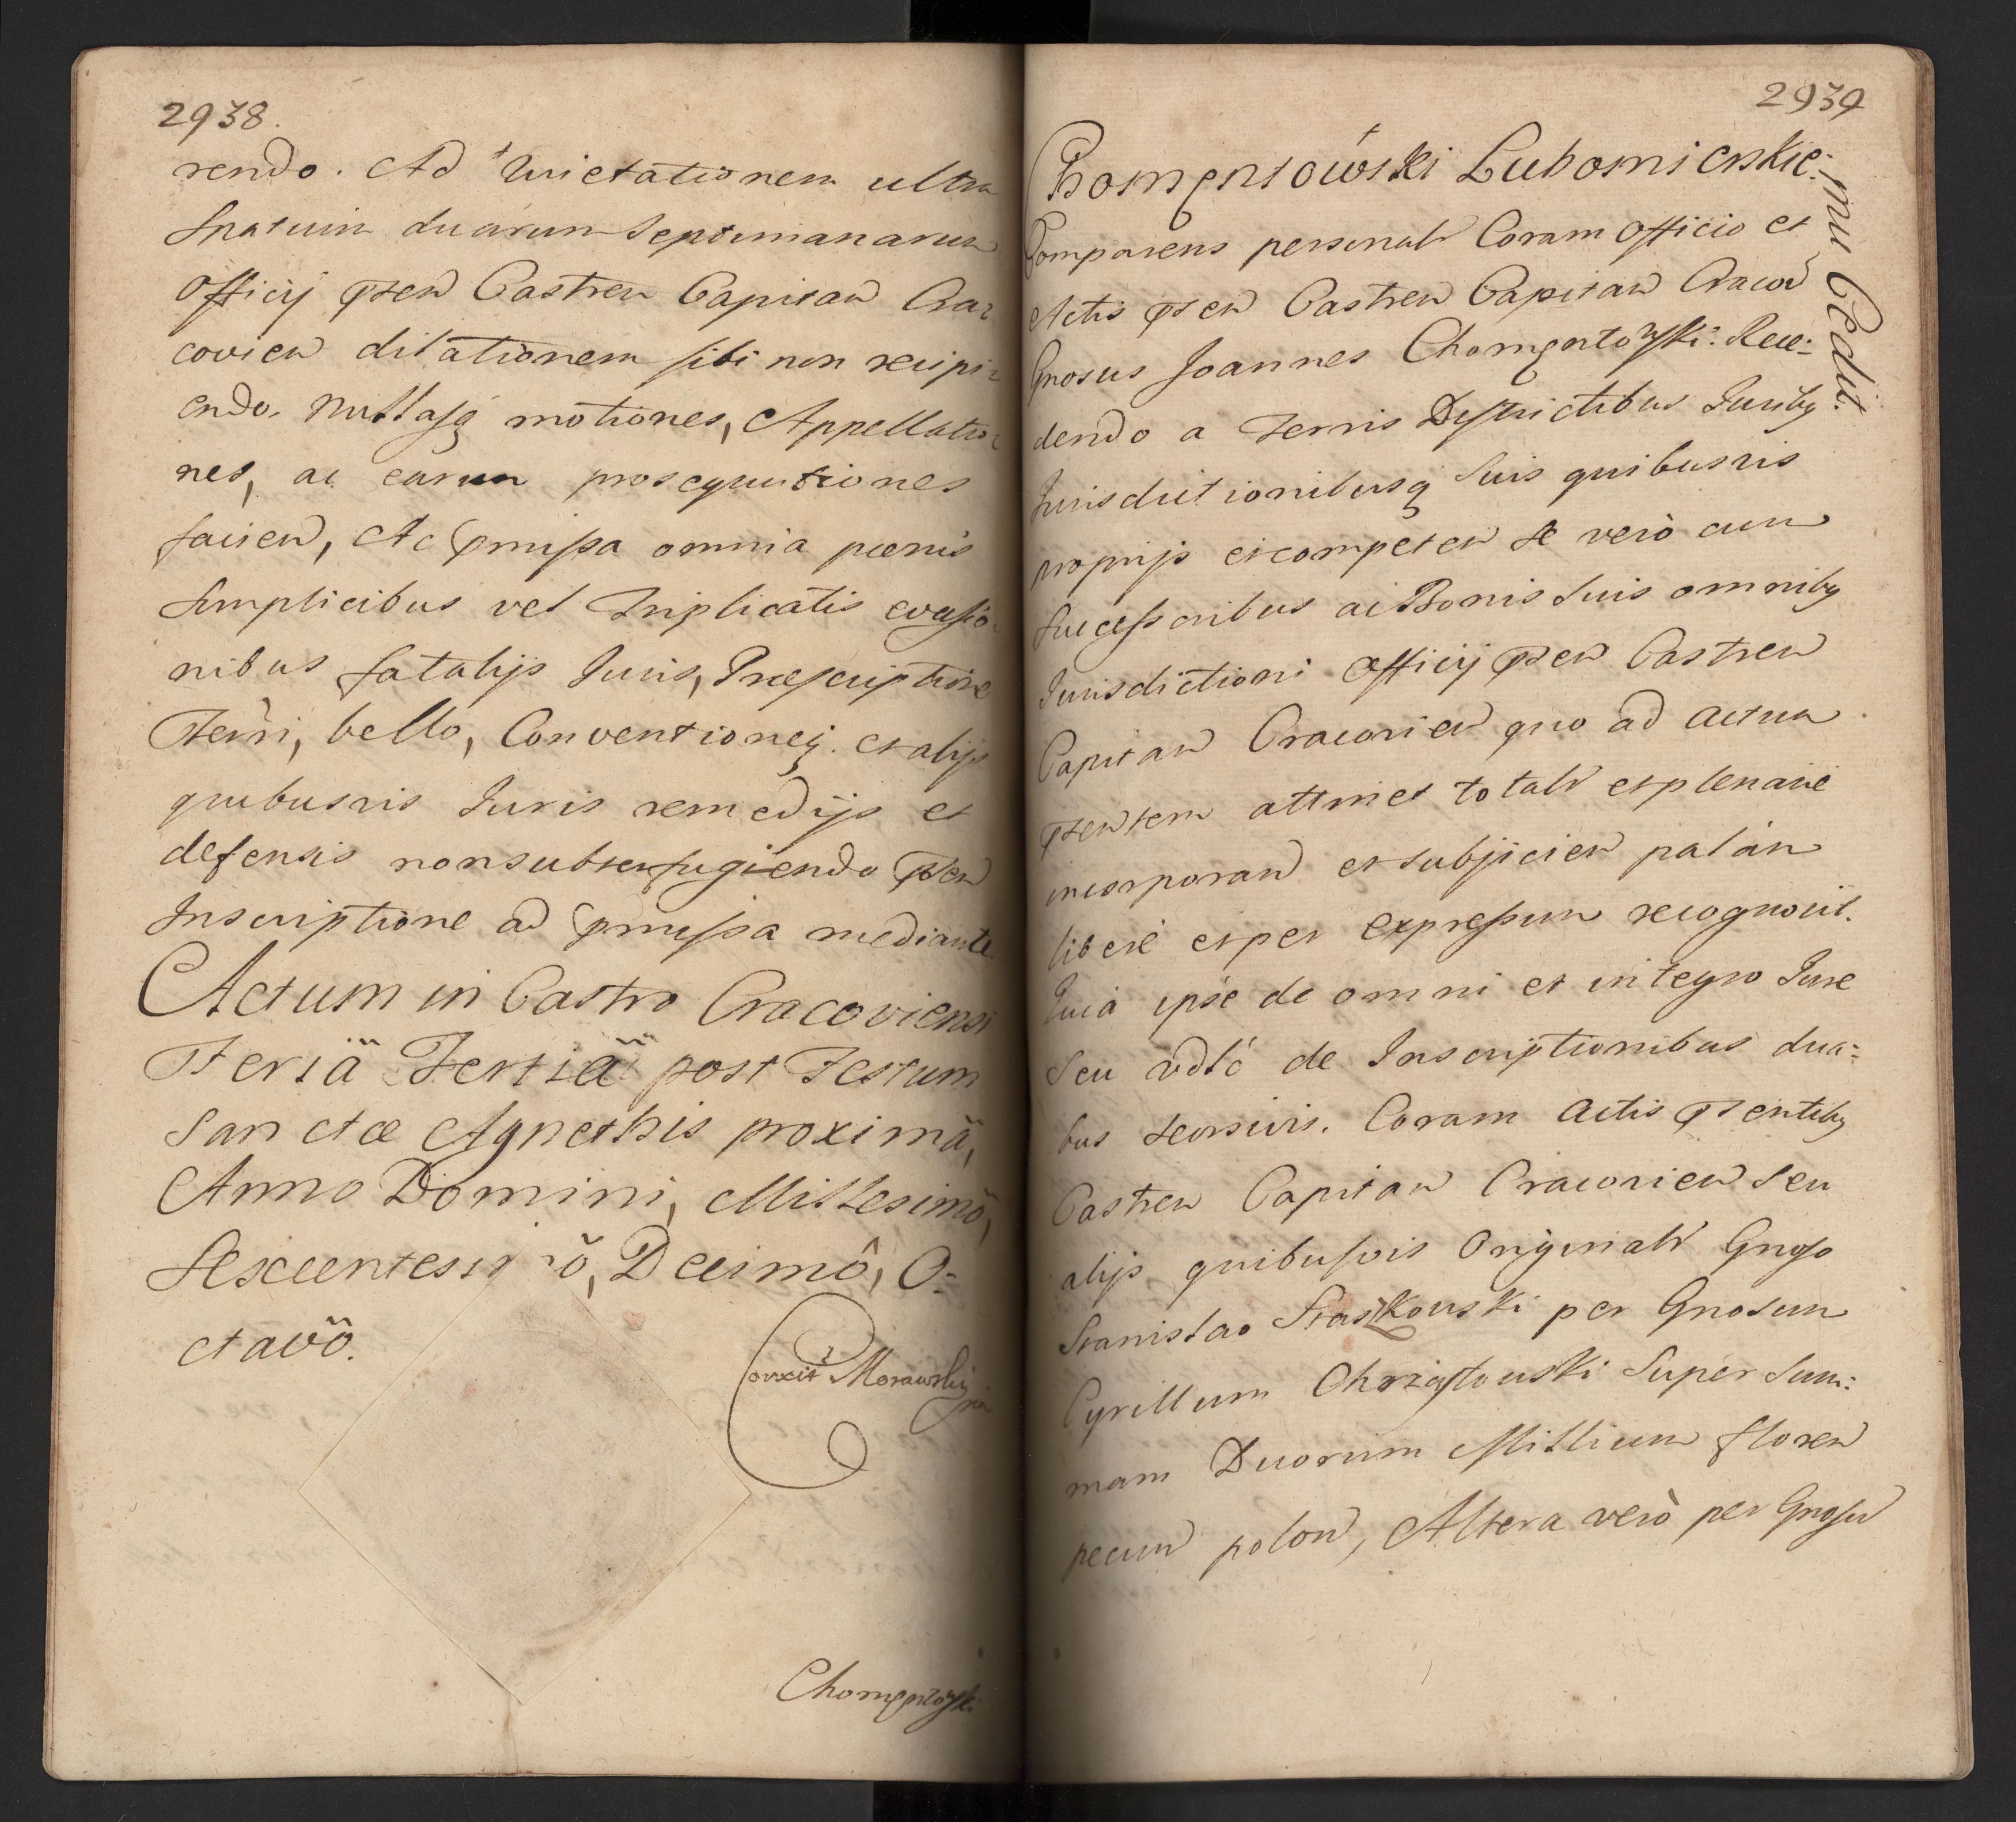 2938.
rendo. Ad Quietationem ultra
Spatium duarum Septimanarum
Officij pšen Castren Capitan Cra=
covien dilationem sibi non recipi=
endo. Nullasq motiones, Appellatio=
nes, ac earum prosequutiones
facien, Ac pmissa omnia pœnis
Simplicibus vel Triplicatis evasio=
nibus fatalijs Juris, Præscriptione
Terri, bello, Conventioneq. et alijs
quibusvis Juris remedijs et
defensis non subterfugiendo pšen
Inscriptione ad pmissa mediante.
Actum in Castro Cracoviensi
Feriä Tertiä post Festum
Sanctæ Agnethis proximâ,
Anno Domini, Millesimô,
Sexcentesimô, Decimô, O=
ctavô.
Corrxit Morawski
Chomentowski
2939
Chomentowski Lubomierskie=
mu Cedit.
Comparens personalr Coram Officio et
Actis pšen Castren Capitan Cracov
Gnosus Joannes Chomentowski: Rece=
dendo a Terris Districtibus Juribq
Jurisdictionibusq suis quibusvis
proprijs et competen se verò cum
Successoribus ac Bonis suis omnibq
Jurisdictioni Officij pšen Castren
Capitan Cracovien quo ad actum
pšentem attinet totalr et plenariè
incorporan et subjicien palàm
liberè et per expressum recognovit.
Quia ipse de omni et integro Jure
Seu vdlc de Inscriptionibus dua=
bus seorsivis. Coram Actis pšentibq
Castren Capitan Cracovien seu
alijs quibusvis Originalr Gnoso
Stanislao Staszkowski per Gnosum
Cyrillum Chrząstowski Super Sum=
mam Duorum Millium floren
pecun polon, Altera verò per Gnosu